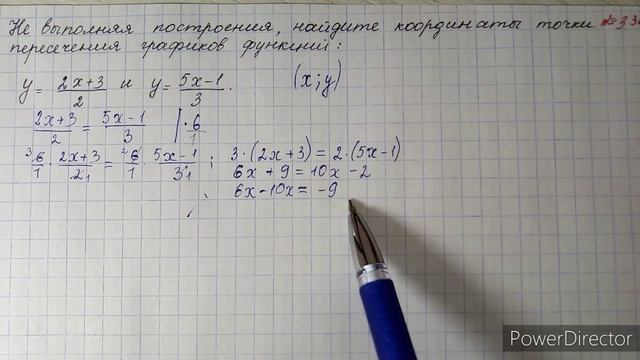 Не выполняя построения, найдите координаты точки
пересечения графиков функций:
y = (2x+3)/2 и y = (5x-1)/3. (x;y)
(2x+3)/2 = (5x-1)/3 | · 6/1
6/1 · (2x+3)/2 = 6/1 · (5x-1)/3 ; 3·(2x+3) = 2·(5x-1)
6x + 9 = 10x - 2
6x - 10x = -9
PowerDirector